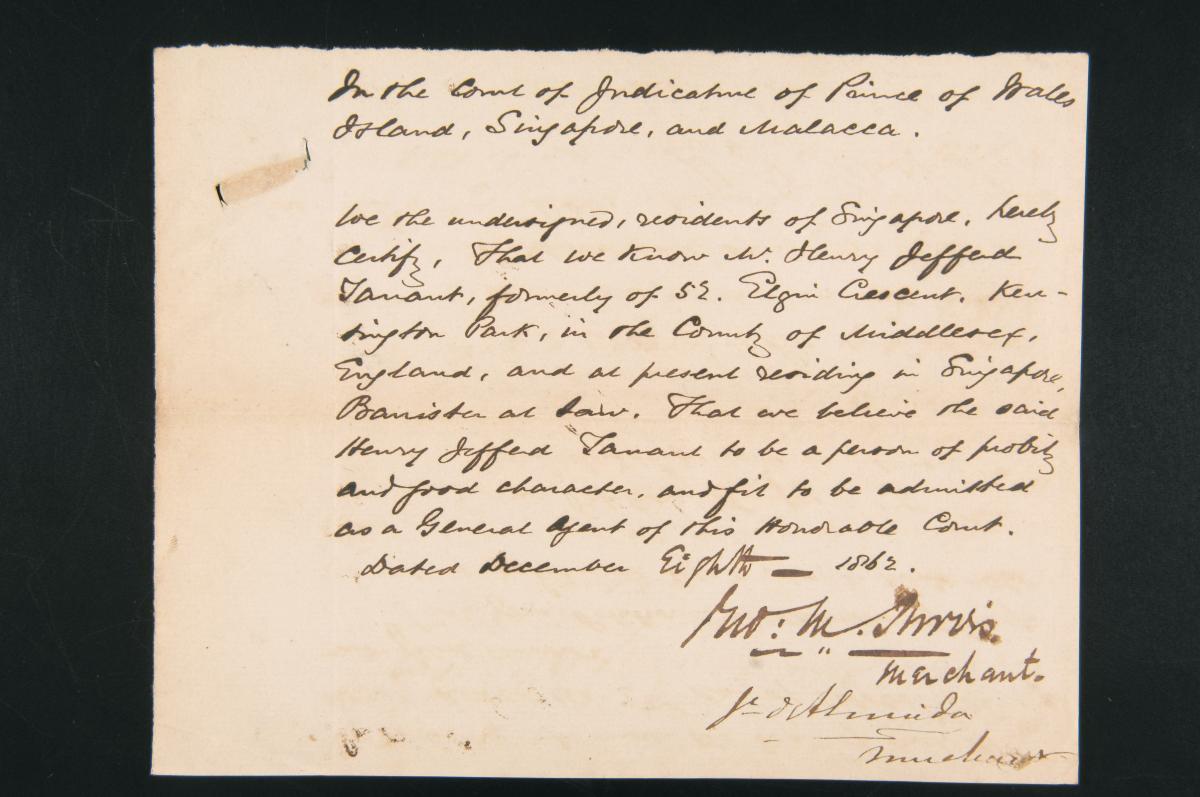 In the Court of Judicature of Prince of Wales
Island, Singapore, and Malacca.
We the undersigned, residents of Singapore, hereby
certify, That we know Mr. Henry Jefferd
Tarrant, formerly of 52. Elgin Crescent. Ken-
sington Park, in the County of Middlesex,
England, and at present residing in Singapore,
Barrister at Law. That we believe the said
Henry Jefferd Tarrant to be a person of probity
and good character, and fit to be admitted
as a General Agent of this Honorable Court.
Dated December Eighth — 1862.
Jno: M.
Merchant.
d'Almeida
Merchant